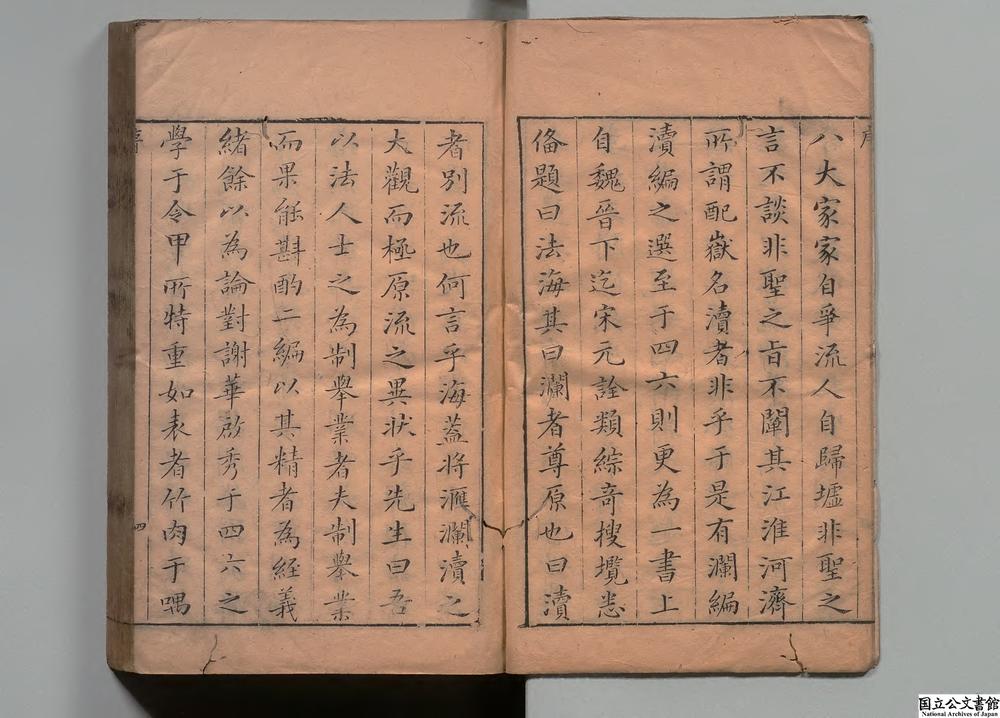 八大家家自爭流人自歸墟非聖之
言不談非聖之旨不闡其江淮河濟
所謂配嶽名瀆者非乎于是有瀾編
瀆編之選至于四六則更為一書上
自魏晉下迄宋元詮類綜奇搜攬悉
俻題曰法海其曰瀾者尊原也曰瀆
者別流也何言乎海蓋將滙瀾瀆之
大觀而極原流之異狀乎先生曰吾
以法人士之為制舉業者夫制舉業
而果能斟酌二編以其精者為經義
緒餘以為論對謝華啟秀于四六之
學于令甲所特重如表者竹肉于喁
四
国立公文書館
National Archives of Japan